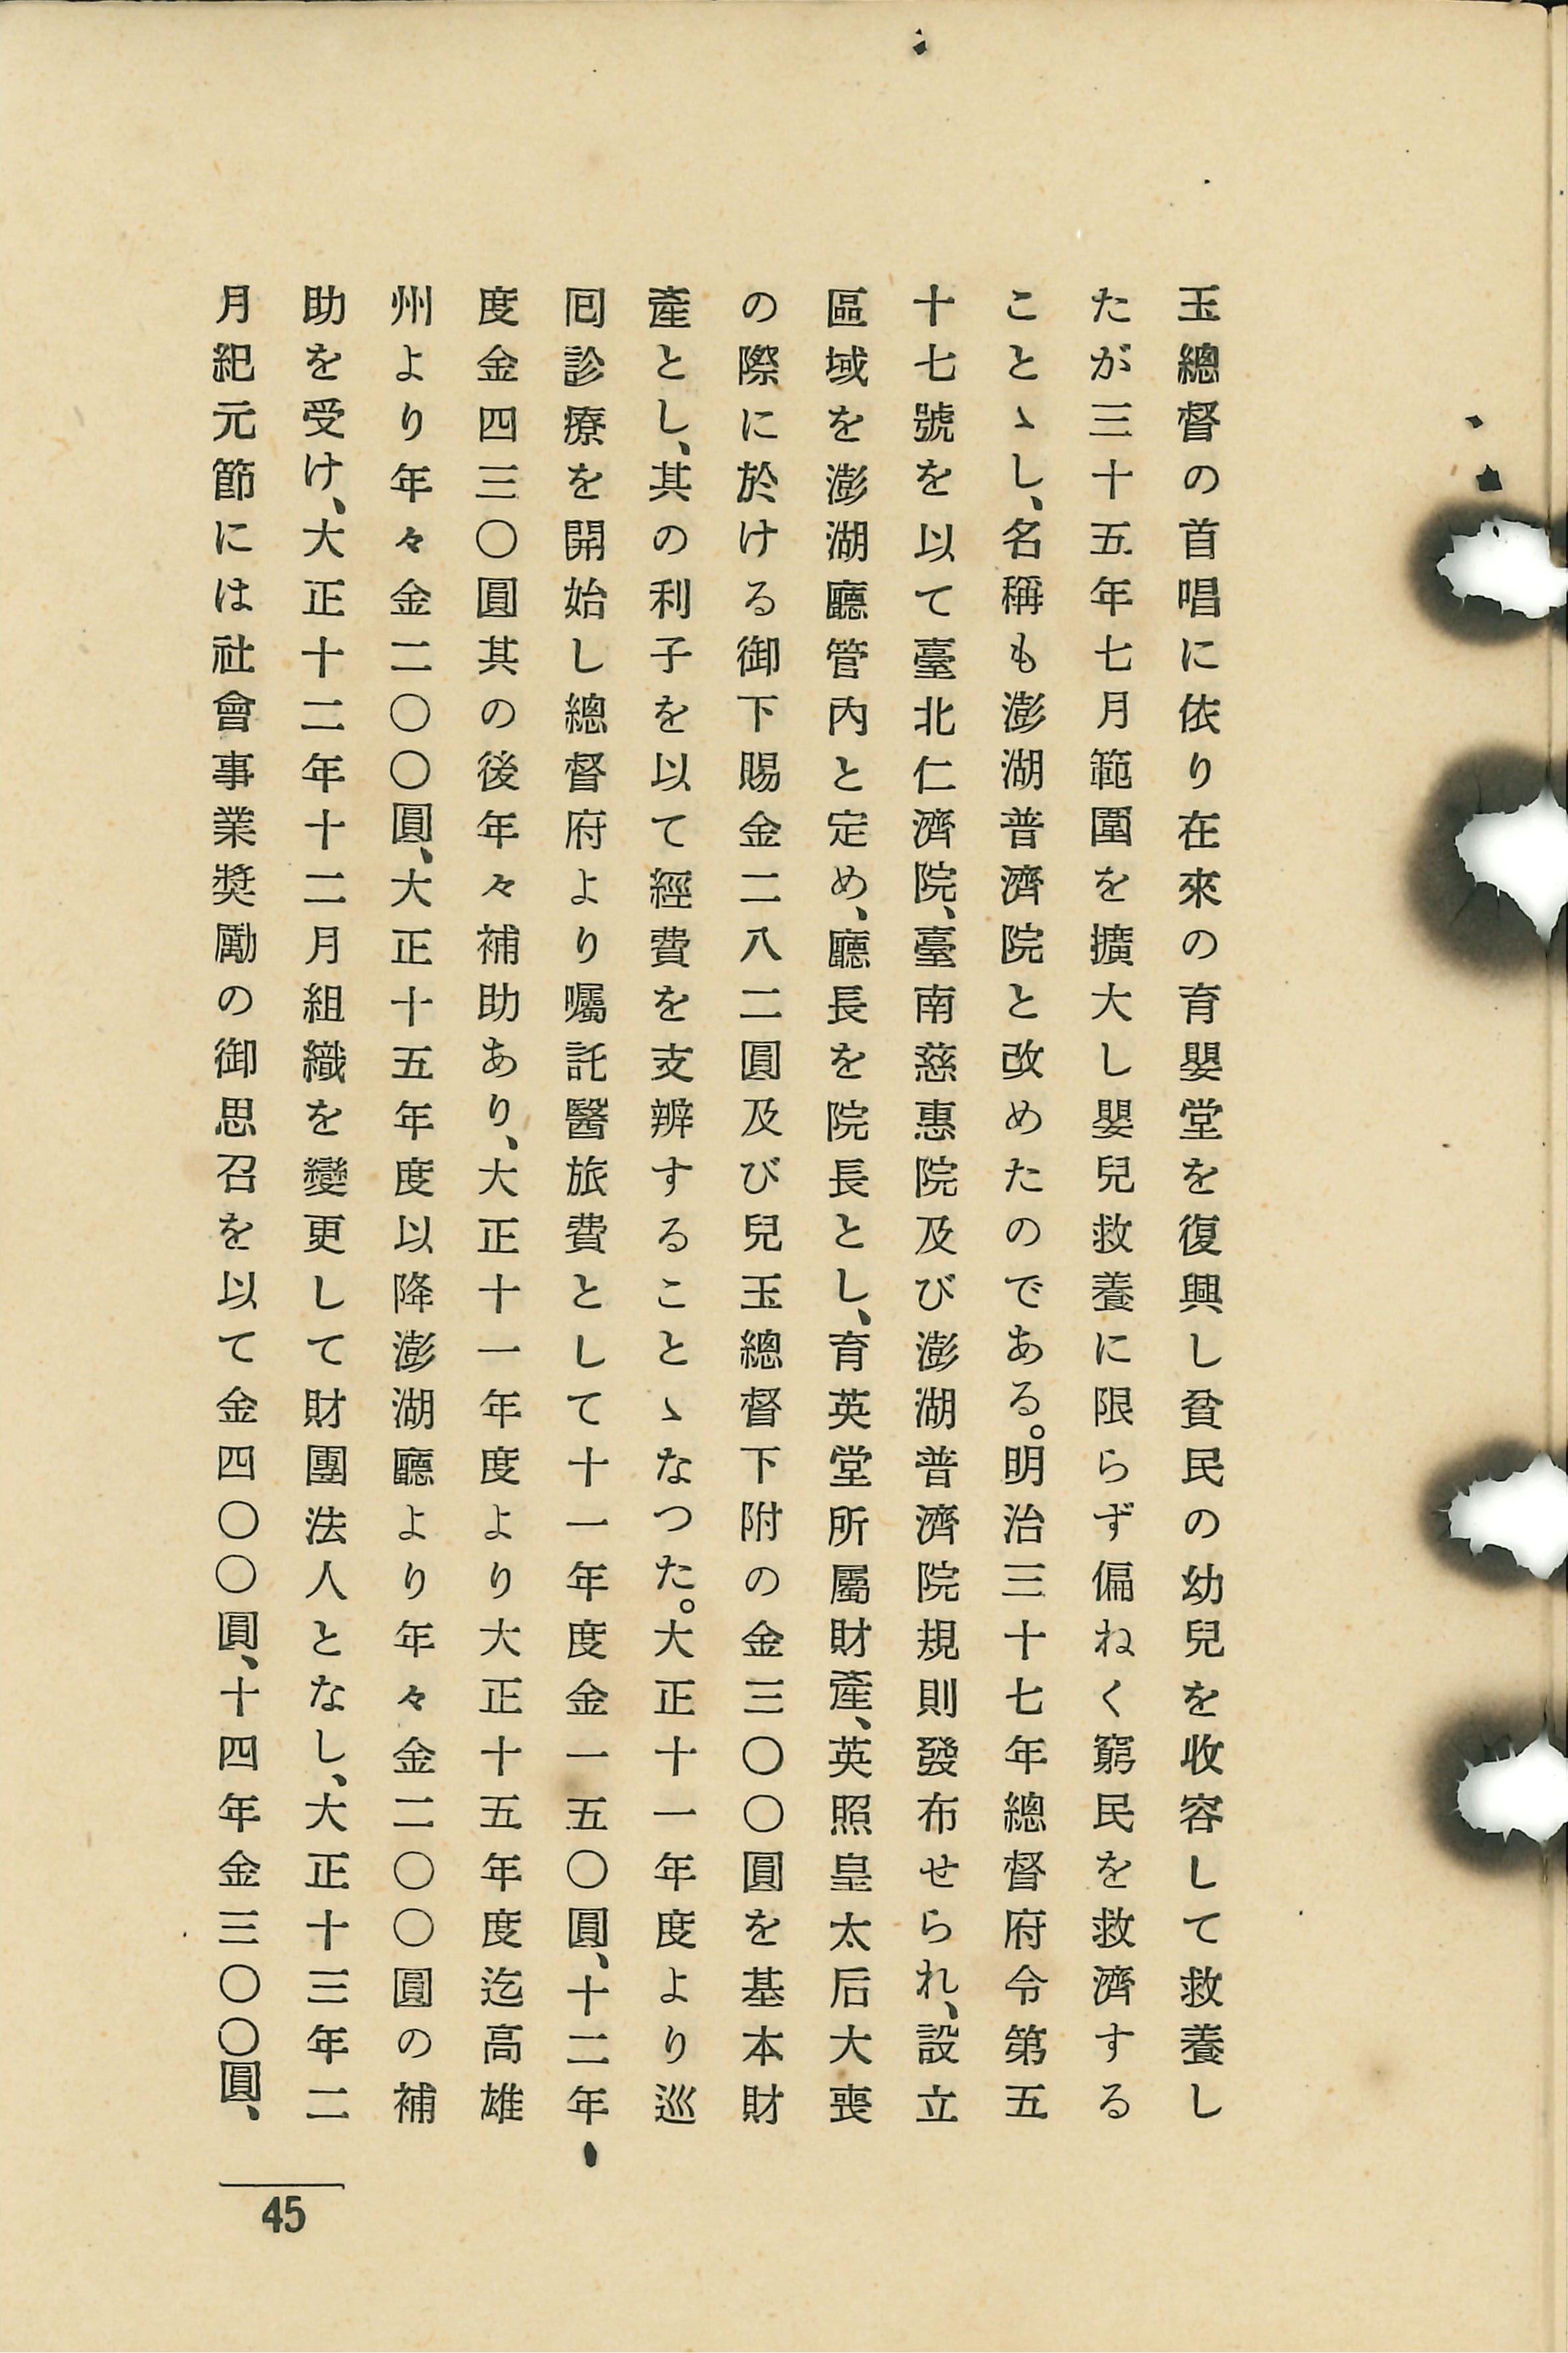 玉總督の首唱に依り在來の育嬰堂を復興し貧民の幼兒を收容して救養し
たが三十五年七月範圍を擴大し嬰兒救養に限らず偏ねく窮民を救濟する
ことゝし、名稱も澎湖普濟院と改めたのである。明治三十七年總督府令第五
十七號を以て臺北仁濟院、臺南慈惠院及び澎湖普濟院規則發布せられ、設立
區域を澎湖廳管內と定め、廳長を院長とし、育英堂所屬財產、英照皇太后大喪
の際に於ける御下賜金二八二圓及び兒玉總督下附の金三〇〇圓を基本財
產とし、其の利子を以て經費を支辨することゝなつた。大正十一年度より巡
囘診療を開始し總督府より囑託醫旅費として十一年度金一五〇圓、十二年
度金四三〇圓其の後年々補助あり、大正十一年度より大正十五年度迄高雄
州より年々金二〇〇圓、大正十五年度以降澎湖廳より年々金二〇〇圓の補
助を受け、大正十二年十二月組織を變更して財團法人となし、大正十三年二
月紀元節には社會事業奬勵の御思召を以て金四〇〇圓、十四年金三〇〇圓、
45